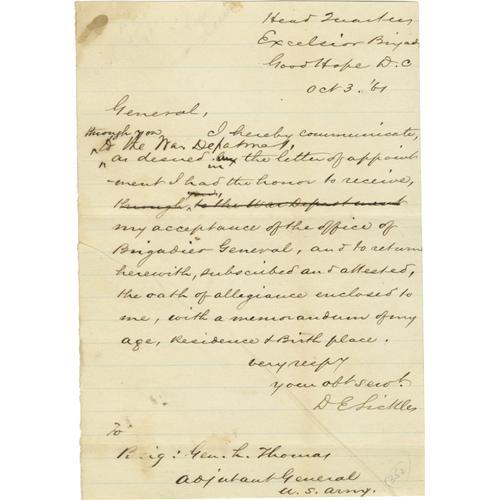 Head Quarters
Excelsior Brigad
Good Hope D.C
Oct 3. '61
General,
through you I hereby communicate,
to the War Depatmt,
as desired in the letter of appoint
-ment I had the honor to receive,
through you, to the War Department
my acceptance of the office of
Brigadier General, and to return
herewith, subscribed and attested,
the oath of allegiance enclosed to
me, with a memorandum of my
age, Residence & Birth place.
very respy
your obt servt.
D E Sickles
To
Brig: Gen. L. Thomas
Adjutant General
U.S. Army.
350